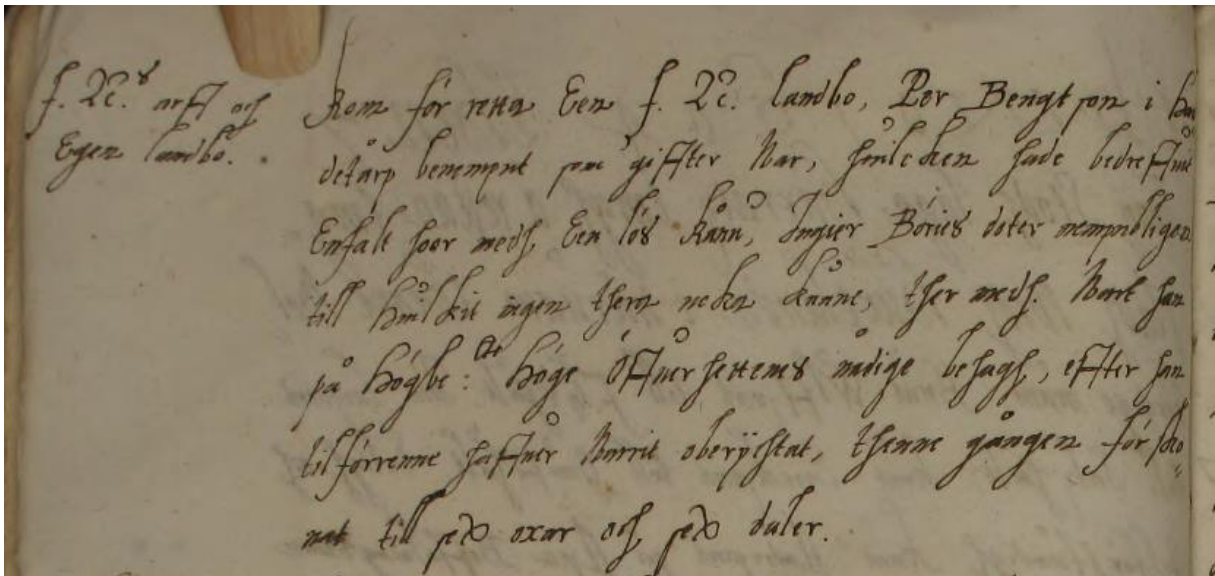 f. N:s arff och
Egen landbo.
Kom för retta Een f. N: landbo, Per Bengtson i
detarp benempnt som giffter War, huilcken hade bedreffuit
Enfalt hoor medh Een lös Kånn, Ingier Böries doter nempndligen
till huilkit ingen thera neka kunne, ther medh. Wart han
på högbe:te höge Öffuerhettenes nådige behagh, effter han
tilförrenne haffuer Warrit oberÿchtat, thenne gången för sko=
nat till sex oxar och sex daler.